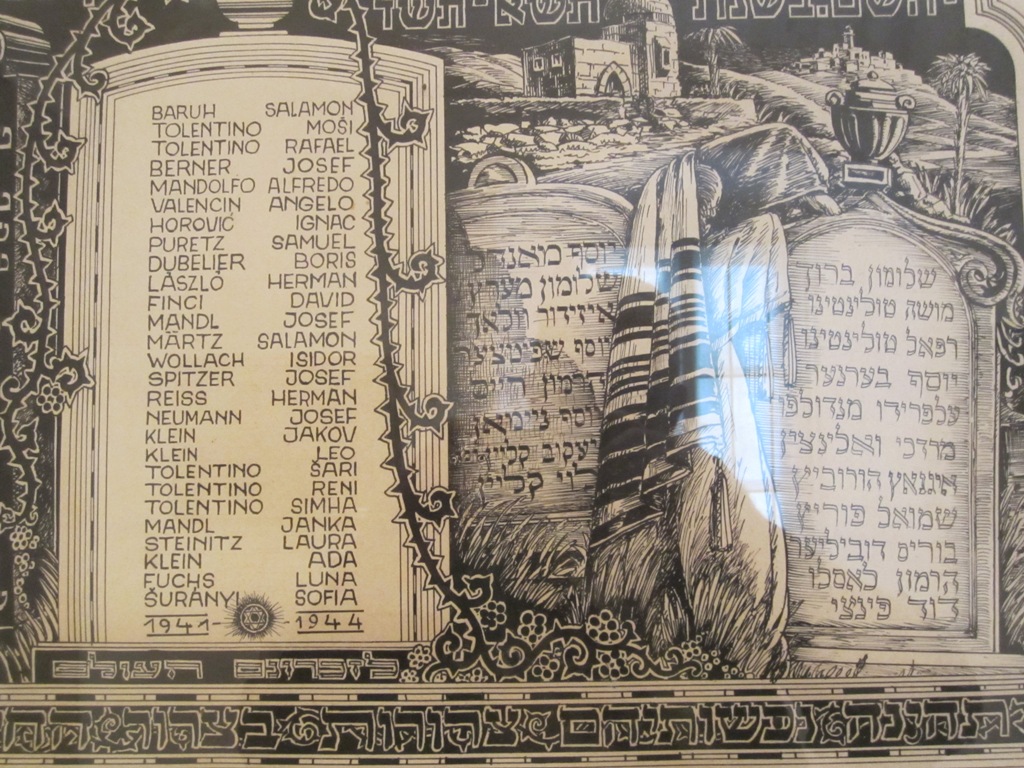 יהשם.בשנת תשא-תשד
BARUH SALAMON
TOLENTINO MOŠI
TOLENTINO RAFAEL
BERNER JOSEF
MANDOLFO ALFREDO
VALENCIN ANGELO
HOROVIĆ IGNAC
PURETZ SAMUEL
DUBELIER BORIS
LÁSZLÓ HERMAN
FINCI DAVID
MANDL JOSEF
MÄRTZ SALAMON
WOLLACH ISIDOR
SPITZER JOSEF
REISS HERMAN
NEUMANN JOSEF
KLEIN JAKOV
KLEIN LEO
TOLENTINO ŠARI
TOLENTINO RENI
TOLENTINO SIMHA
MANDL JANKA
STEINITZ LAURA
KLEIN ADA
FUCHS LUNA
ŠURÁNYI SOFIA
1941 - 1944
שלומון ברוך
מושה טולינטינו
רפאל טולינטינו
יוסף בערנער
עלפרידו מנדולפו
מרדכי ואלינצין
איגנאץ הורוביץ
שמואל פוריץ
בוריס דוביליער
הרמון לאסלו
דוד פינצי
יוסף מאנדל
שלומון מערץ
איזידור וולאך
יוסף שפיטצער
הרמון רייס
יוסף ניימאן
יעקוב קליין
לוי קליין
לזכרונם העולם
תהינה נפשותיהם צרורות בצרור